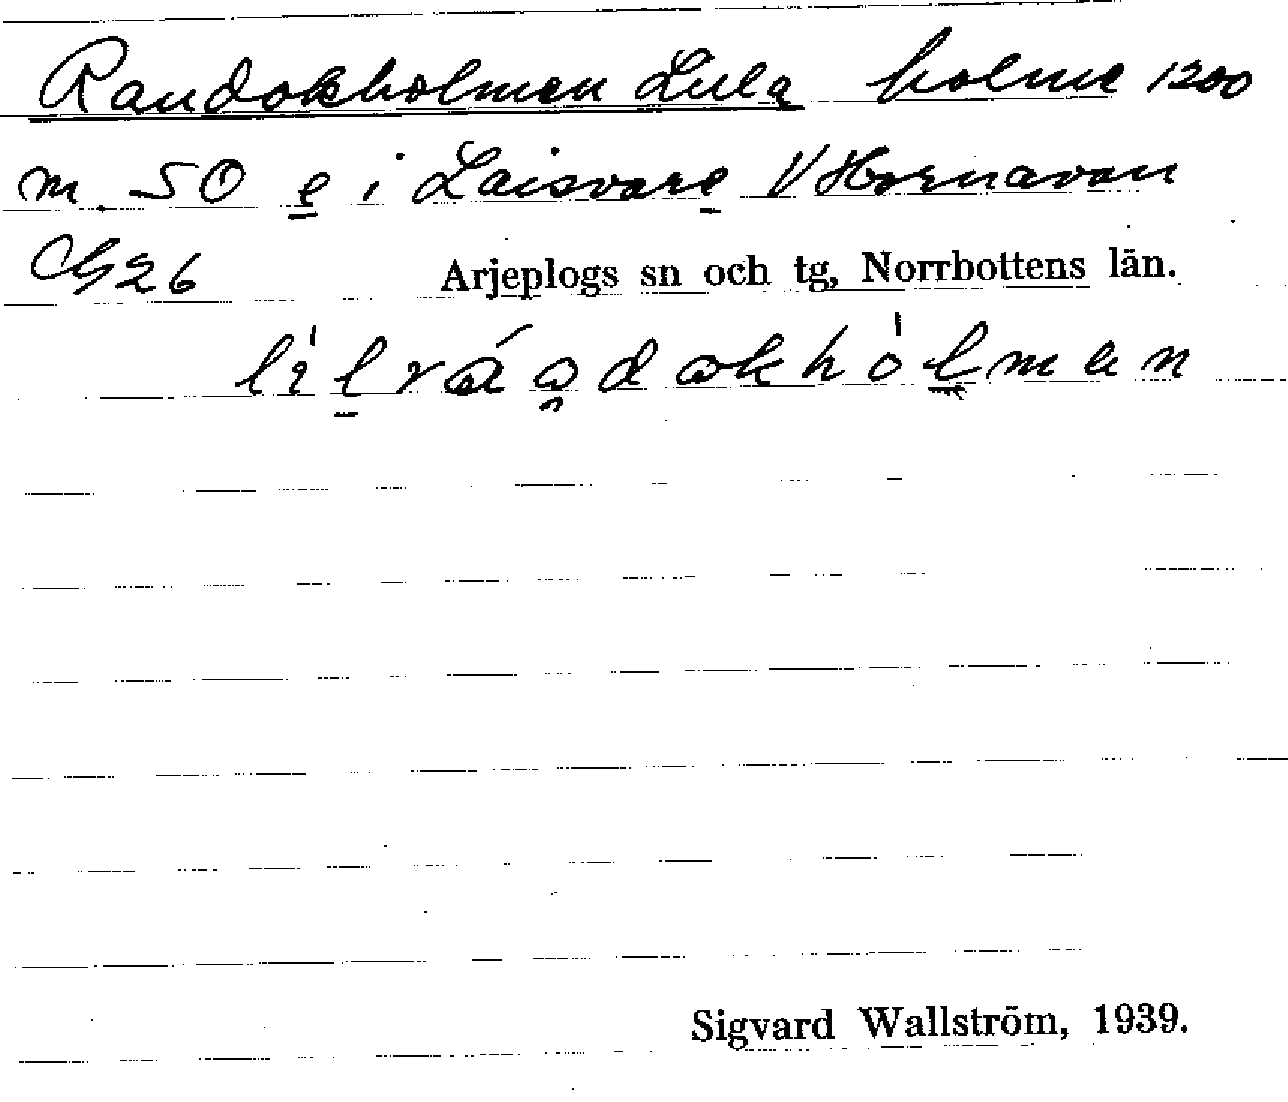 Randokholmen Lilla holme 1200
m. SO e i Laisvare V Hornavan
G26 Arjeplogs sn och tg, Norrbottens län.
Sigvard Wallström, 1939.